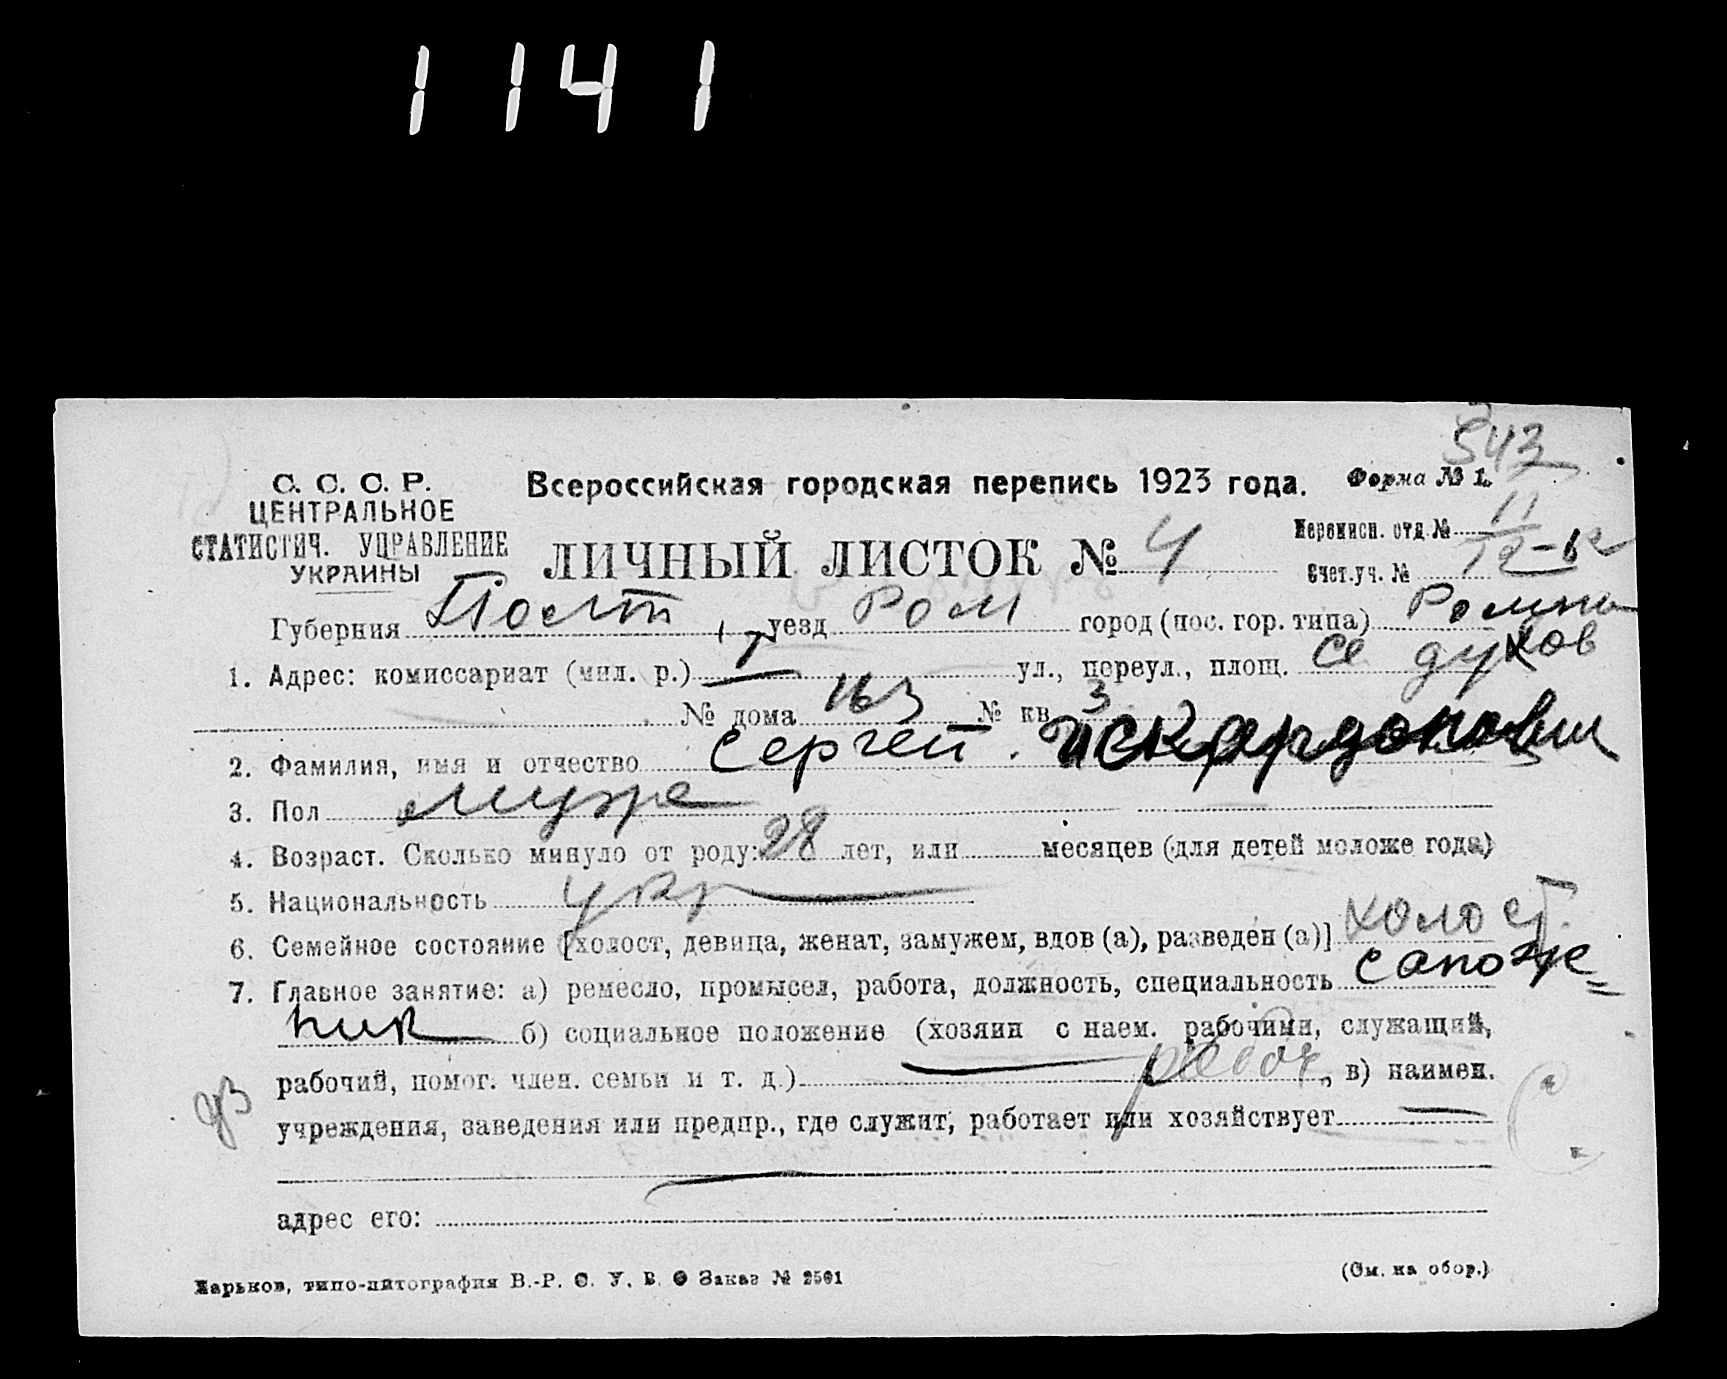 1141
543
С. С. С. Р.
ЦЕНТРАЛЬНОЕ
СТАТИСТИЧ. УПРАВЛЕНИЕ
УКРАИНЫ
Всероссийская городская перепись 1923 года. Форма № 1.
ЛИЧНЫЙ ЛИСТОК № 4
Переписн. отд. № 11
Счет. уч. № 12
Губерния Полт уезд Ром город (пос. гор. типа) Ромны
1. Адрес: комиссариат (мил. р.) I ул., переул., площ. Св духов
№ дома 163 № кв. 3
2. Фамилия, имя и отчество Сергей
3. Пол муж
4. Возраст. Сколько минуло от роду: 28 лет, или месяцев (для детей моложе года)
5. Национальность укр
6. Семейное состояние [холост, девица, женат, замужем, вдов (а), разведен (а)] холост.
7. Главное занятие: а) ремесло, промысел, работа, должность, специальность сапож=
ник б) социальное положение (хозяин с наем. рабочими, служащий,
рабочий, помог. член. семьи и т. д.) рабоч, в) наимен.
учреждения, заведения или предпр., где служит, работает или хозяйствует
адрес его:
Харьков, типо-литография В.-Р. С. У. В. О Заказ № 2501
(См. на обор.)